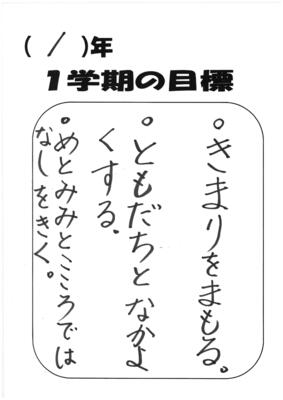 ( 1 )年
1学期の目標
。きまりをまもる。
。ともだちとなかよ
くする。
。めとみみとこころでは
なしをきく。